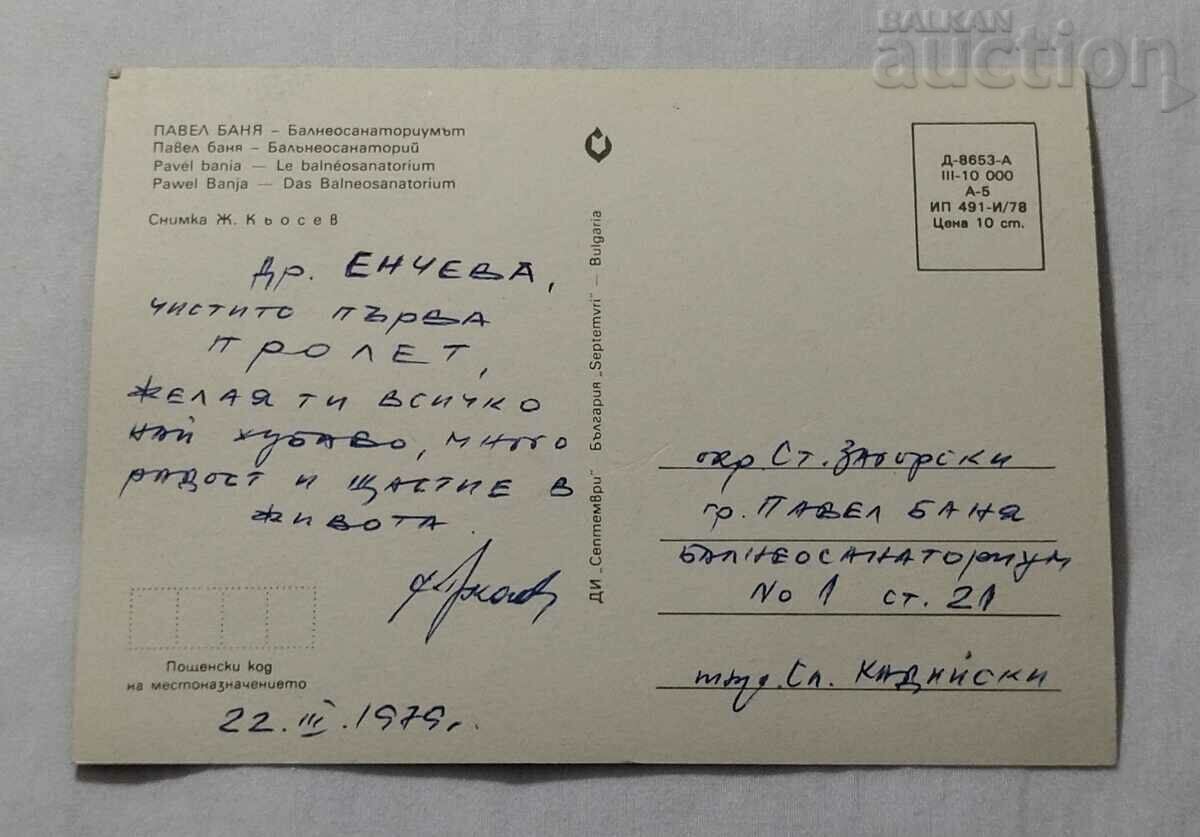 BALKAN
auction
ПАВЕЛ БАНЯ – Балнеосанаториумът
Павел баня – Бальнеосанаторий
Pavel bania — Le balnéosanatorium
Pawel Banja — Das Balneosanatorium
Снимка Ж. Кьосев
Др. ЕНЧЕВА,
ЧИСТИТО ПЪРВА
ПРОЛЕТ,
ЖЕЛАЯ ТИ ВСИЧКО
НАЙ ХУБАВО, МНОГО
РАДОСТ И ЩАСТИЕ В
ЖИВОТА.
Пощенски код
на местоназначението
22.III.1979г.
ДИ „Септември“ България „Septemvri“ — Bulgaria
Д-8653-А
III-10 000
А-5
ИП 491-И/78
Цена 10 ст.
окр. Ст. Загорски
гр. ПАВЕЛ БАНЯ
БАЛНЕОСАНАТОРИУМ
No 1 ст. 21
Сл. КАДИЙСКИ